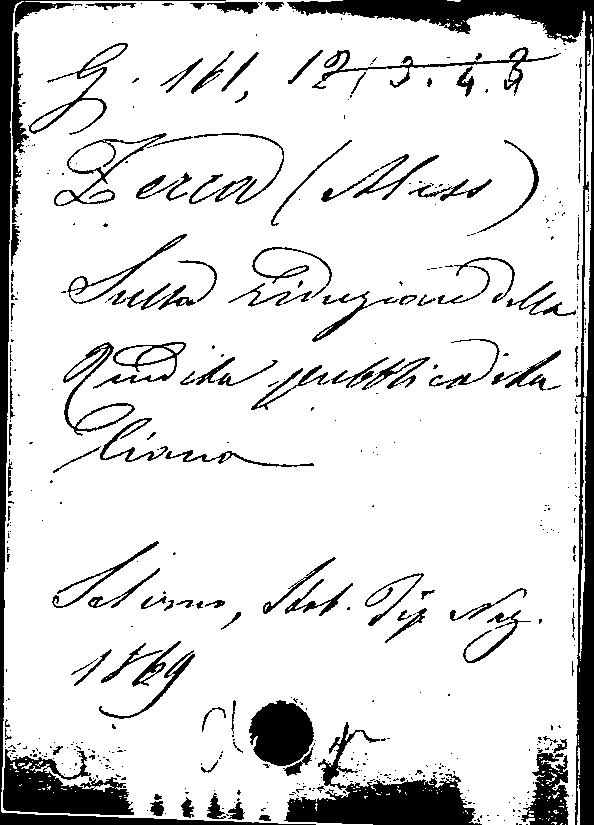 G. 161, 12, 3. 4. 3
Zerca (Aless)
Sulla riduzione della
Rendita pubblica ita
liana
Salerno, Stab. Tip. Naz.
1869